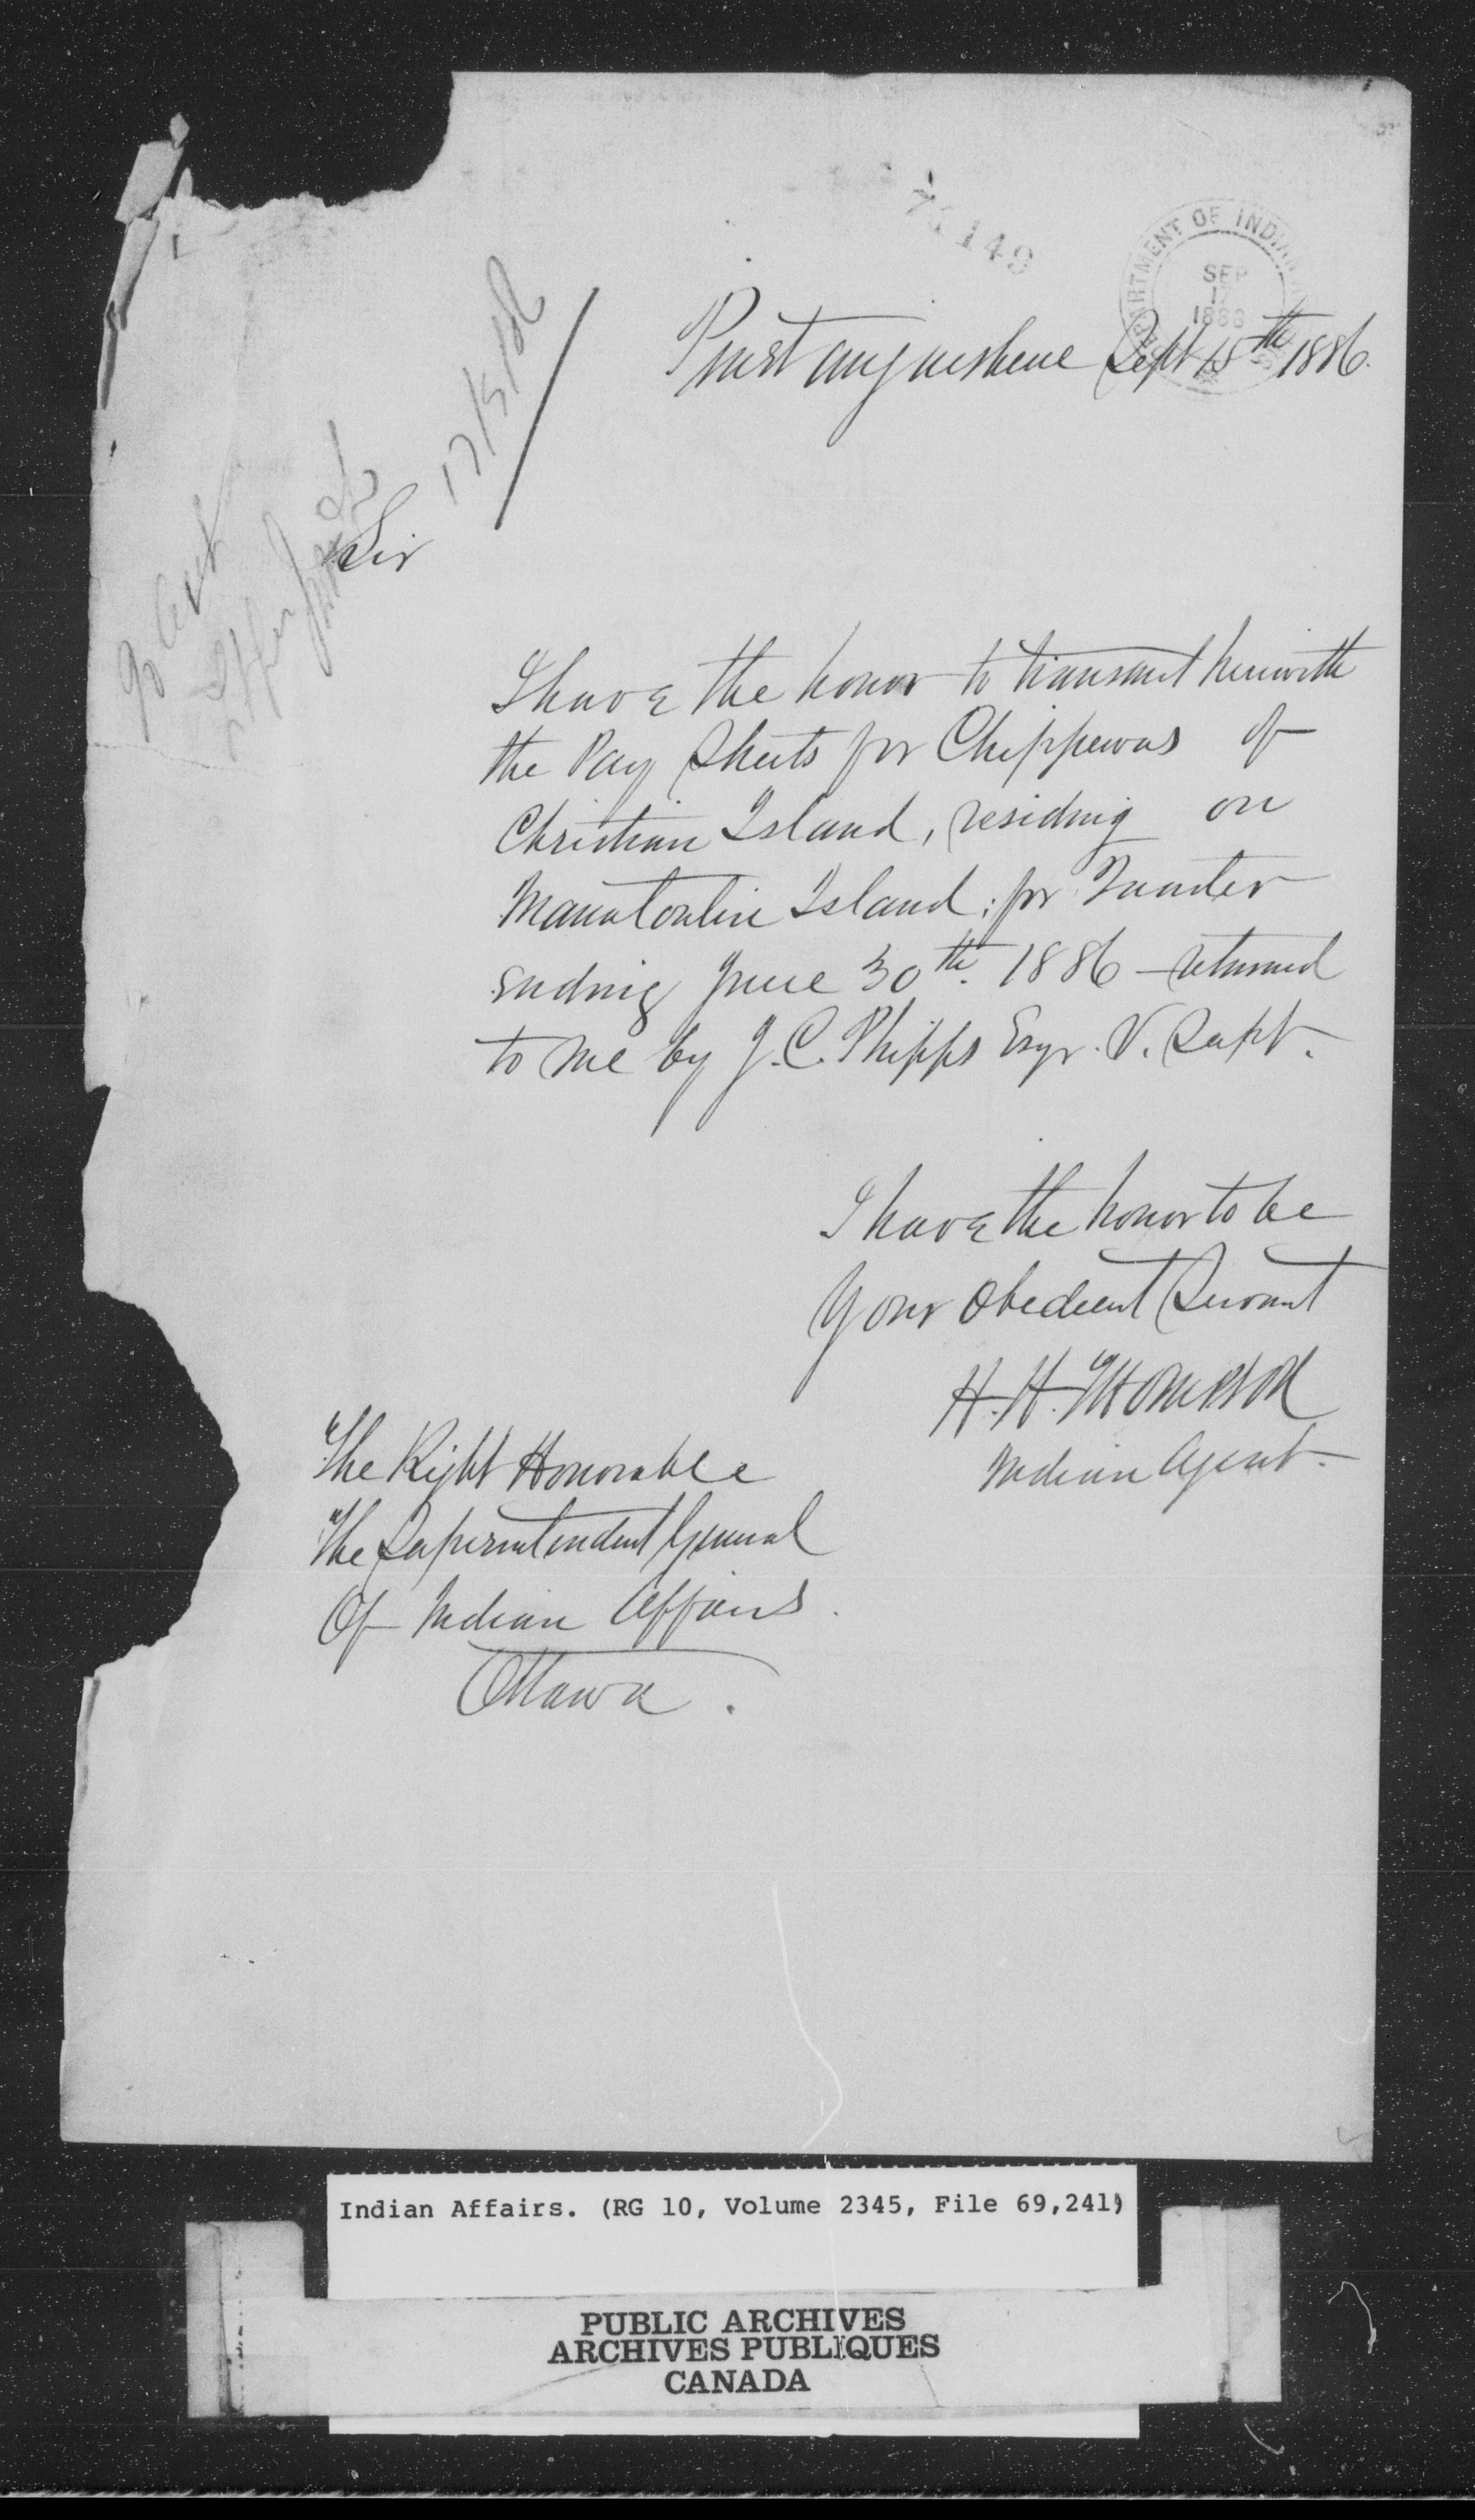 149
DEPARTMENT OF INDIAN
SEP
1886
Penetanguishene Sept 15th 1886.
17/5/86
Sir
I have the honor to transmit herewith
the Pay Sheets for Chippewas of
Christian Island, residing on
Manatoulin Island; for Quarter
ending June 30th. 1886 - returned
to me by J. C. Phipps Esqr. V. Supt.
I have the honor to be
Your Obedient Servant
H. H. Thompson
Indian Agent.
The Right Honorable
The Superintendent General
Of Indian Affairs.
Ottawa.
Indian Affairs. (RG 10, Volume 2345, File 69,241)
PUBLIC ARCHIVES
ARCHIVES PUBLIQUES
CANADA